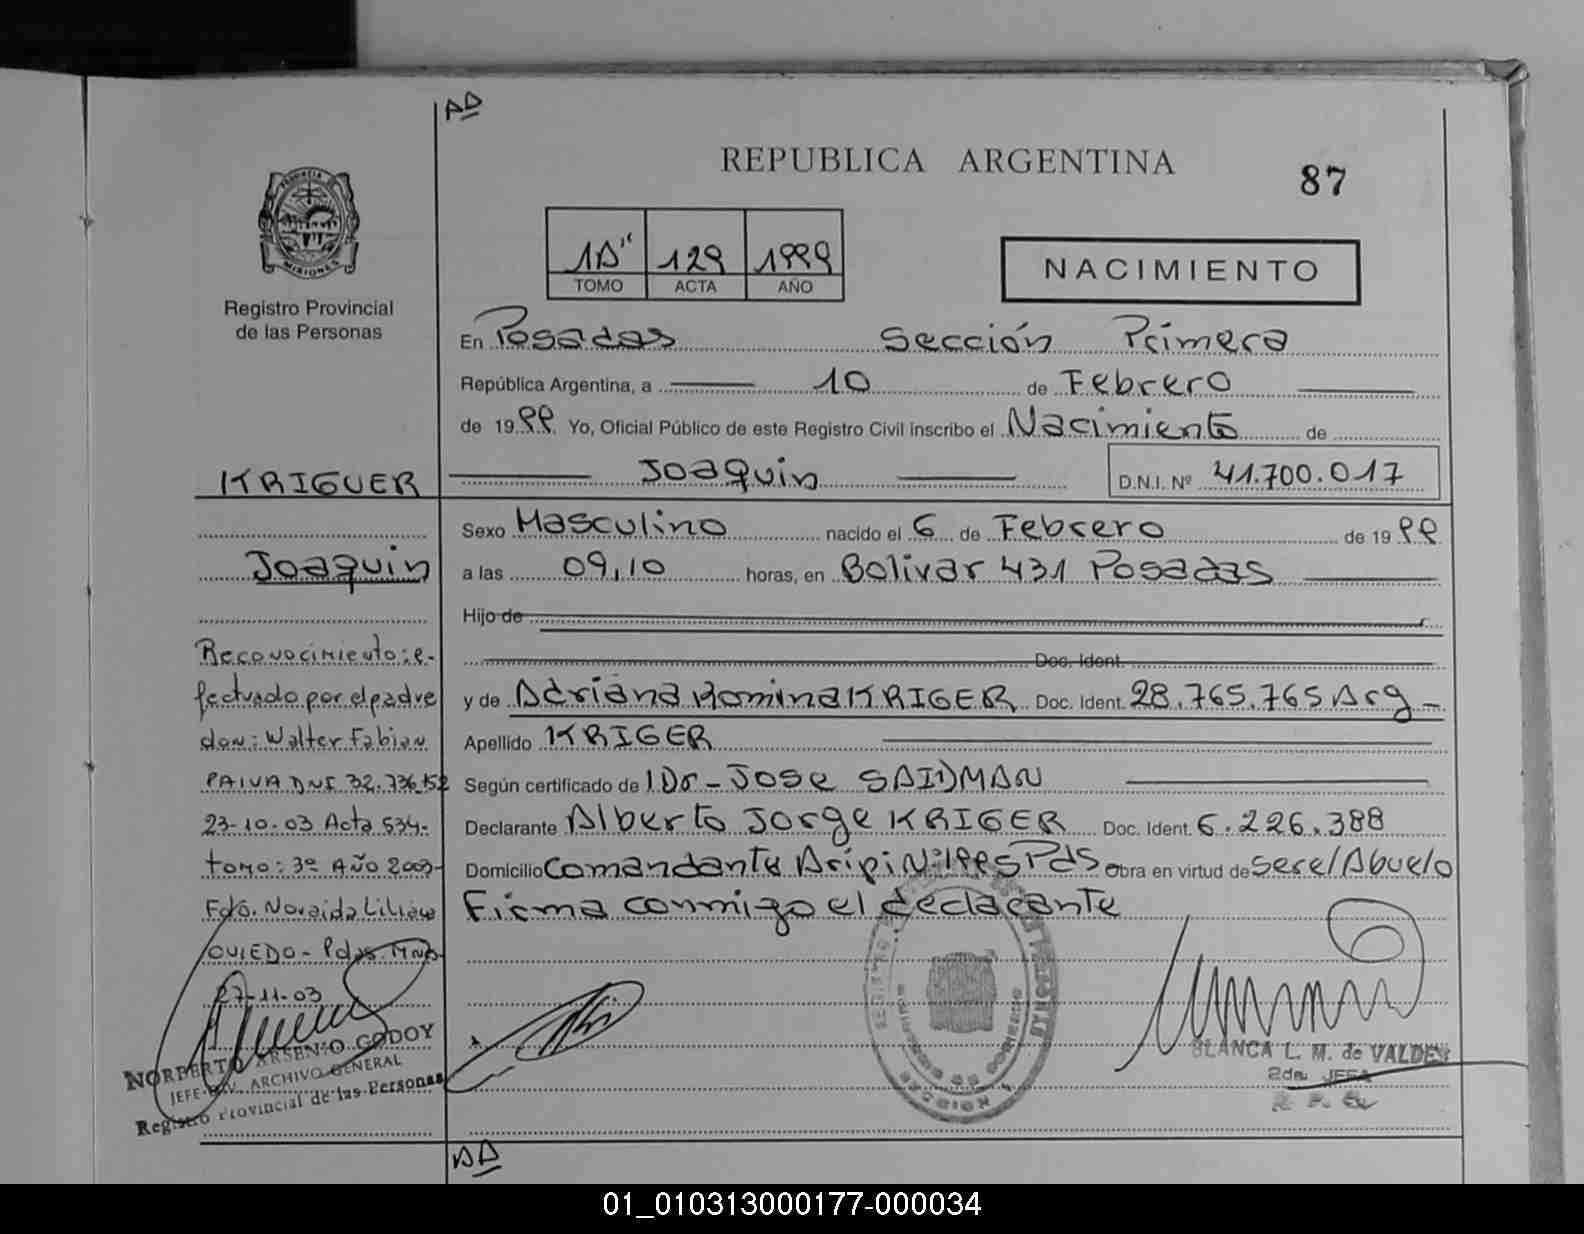 AD
REPUBLICA ARGENTINA
87
PROVINCIA DE MISIONES
Registro Provincial
de las Personas
1A" 129 1999
TOMO ACTA AÑO
NACIMIENTO
En Posadas Sección Primera
República Argentina, a 10 de Febrero
de 1999 Yo, Oficial Público de este Registro Civil inscribo el Nacimiento de
Joaquin D.N.I. Nº 41.700.017
KRIGUER
Joaquin
Reconocimiento: e-
fectuado por el padre
don: Walter Fabian
PAIVA DNI 32.736.152
23-10-03 Acta 534-
tomo: 3º Año 2003-
Fdo. Noraida Liliana
OVIEDO - Pdas. Mnes
27-11-03
NORBERTO ARSENIO GODOY
JEFE DIV. ARCHIVO GENERAL
Registro Provincial de las Personas
Sexo Masculino nacido el 6 de Febrero de 1999
a las 09,10 horas, en Bolivar 431 Posadas
Hijo de
Doc. Ident.
y de Adriana Romina KRIGER Doc. Ident. 28.765.765 Arg
Apellido KRIGER
Según certificado de Dr - Jose SAIDMAN
Declarante Alberto Jorge KRIGER Doc. Ident. 6.226.388
Domicilio Comandante Aripi Nº 1995 Pds Obra en virtud de ser el Abuelo
Firma conmigo el declarante
BLANCA L. M. de VALDEZ
2da. JEFA
AD
01_010313000177-000034